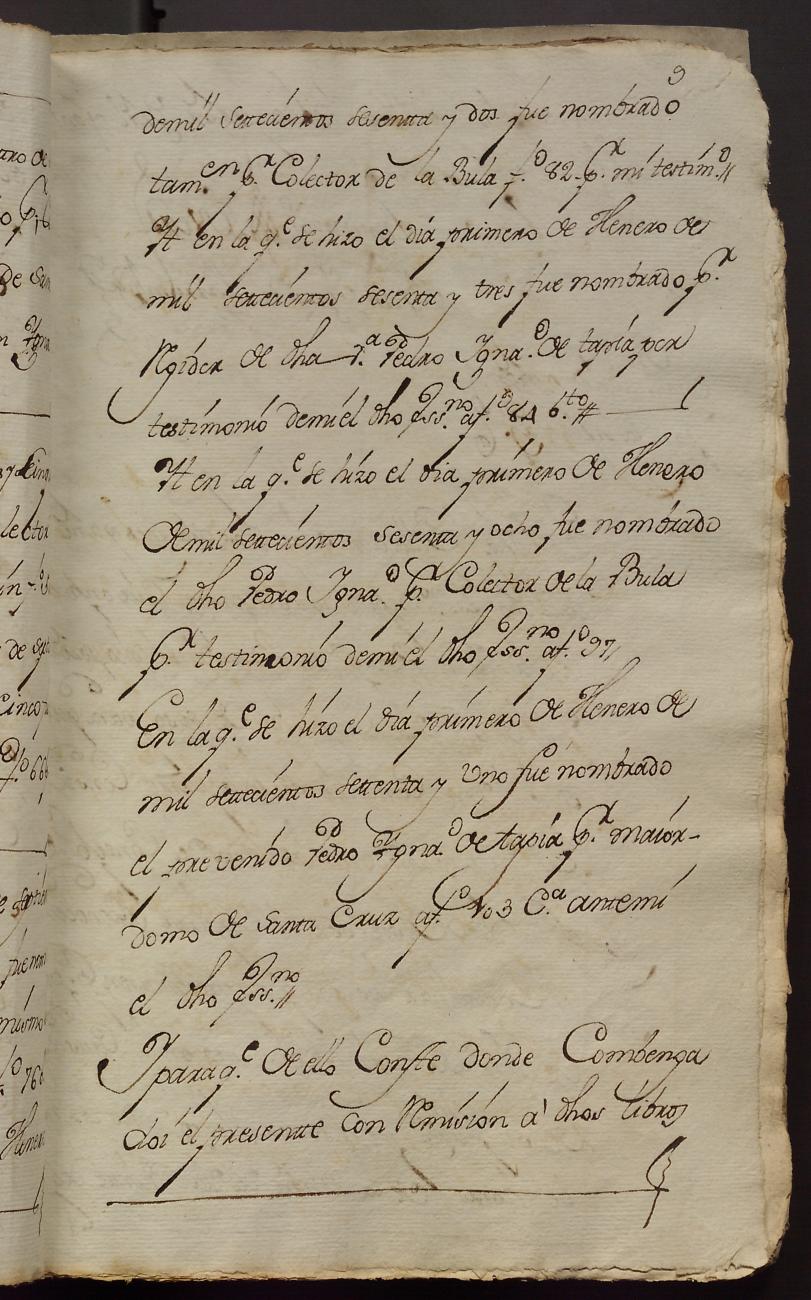 9
demil settecientos sesentta y dos fue nombrado
tam.en p.r Colector de la Bula f.o 82. p.r mi testim.o//
Yt en la q.e se hizo el dia primero de Henero de
mil settecientos sesenta y tres fue nombrado p.r
Rexidor de dha V.a Pedro Ygna.o de tapia por
testimonio demi el dho Ess.no af.o 84 b.to//
Yt en la q.e se hizo el dia primero de Henero
de mil settecientos sesenta y ocho fue nombrado
el dho Pedro Ygna.o p.r Colector de la Bula
p.r testimonio demi el dho Ess.no af.o 97//
En la q.e se hizo el dia primero de Henero de
mil settecientos settenta y uno fue nombrado
el prevenido Pedro Ygna.o de tapia p.r maior-
domo de Santa Cruz af.o 103 antemi
el dho Ess.no//
Y para q.e de ello Conste donde Combenga
doi el presentte con Remision a dhos libros